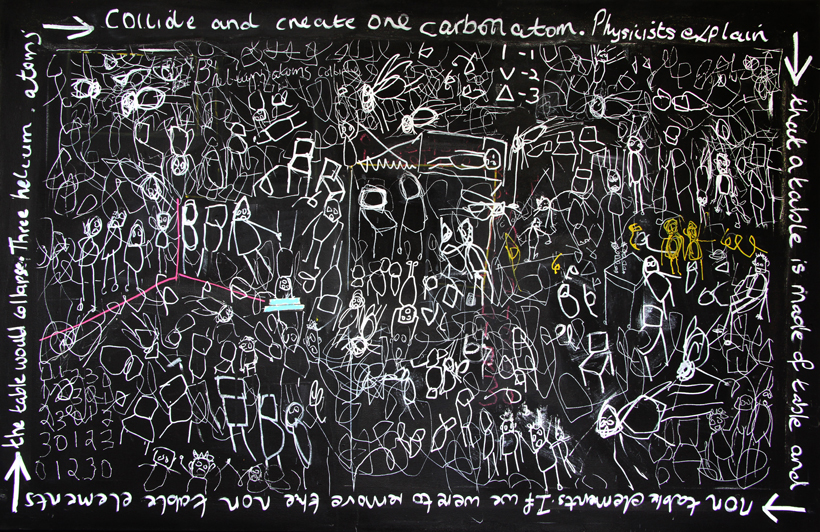 Collide and create one carbon atom. Physicists explain
that a table is made of table and
non table elements. If we were to remove the non table elements
the table would collapse. Three helium . atoms
helium atoms collide
I -1
V -2
Δ -3
3 0 1 2 3
0 1 2 3 0